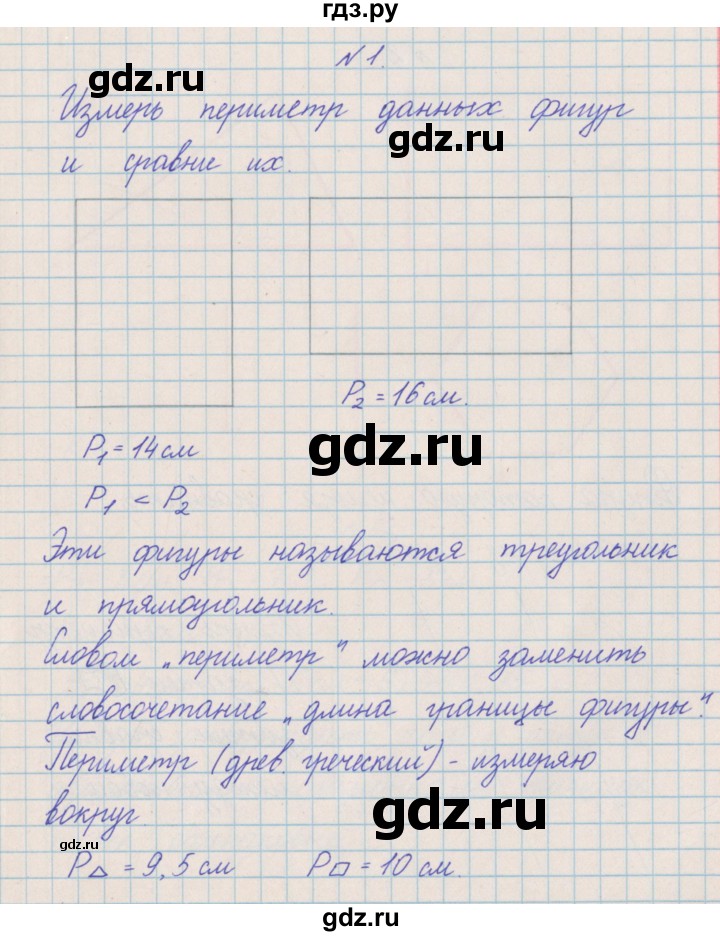 гдз.ру
gdz.ru
N 1.
Измерь периметр данных фигур
gdz.ru
и сравни их.
gdz.ru
P₂ = 16 см.
P₁ = 14 см
gdz.ru
P₁ < P₂
Эти фигуры называются треугольник
и прямоугольник.
Словом „периметр" можно заменить
словосочетание „длина границы фигуры".
Периметр (древ. греческий) - измеряю
вокруг.
gdz.ru
gdz.ru
P△ = 9,5 см P□ = 10 см.
gdz.ru